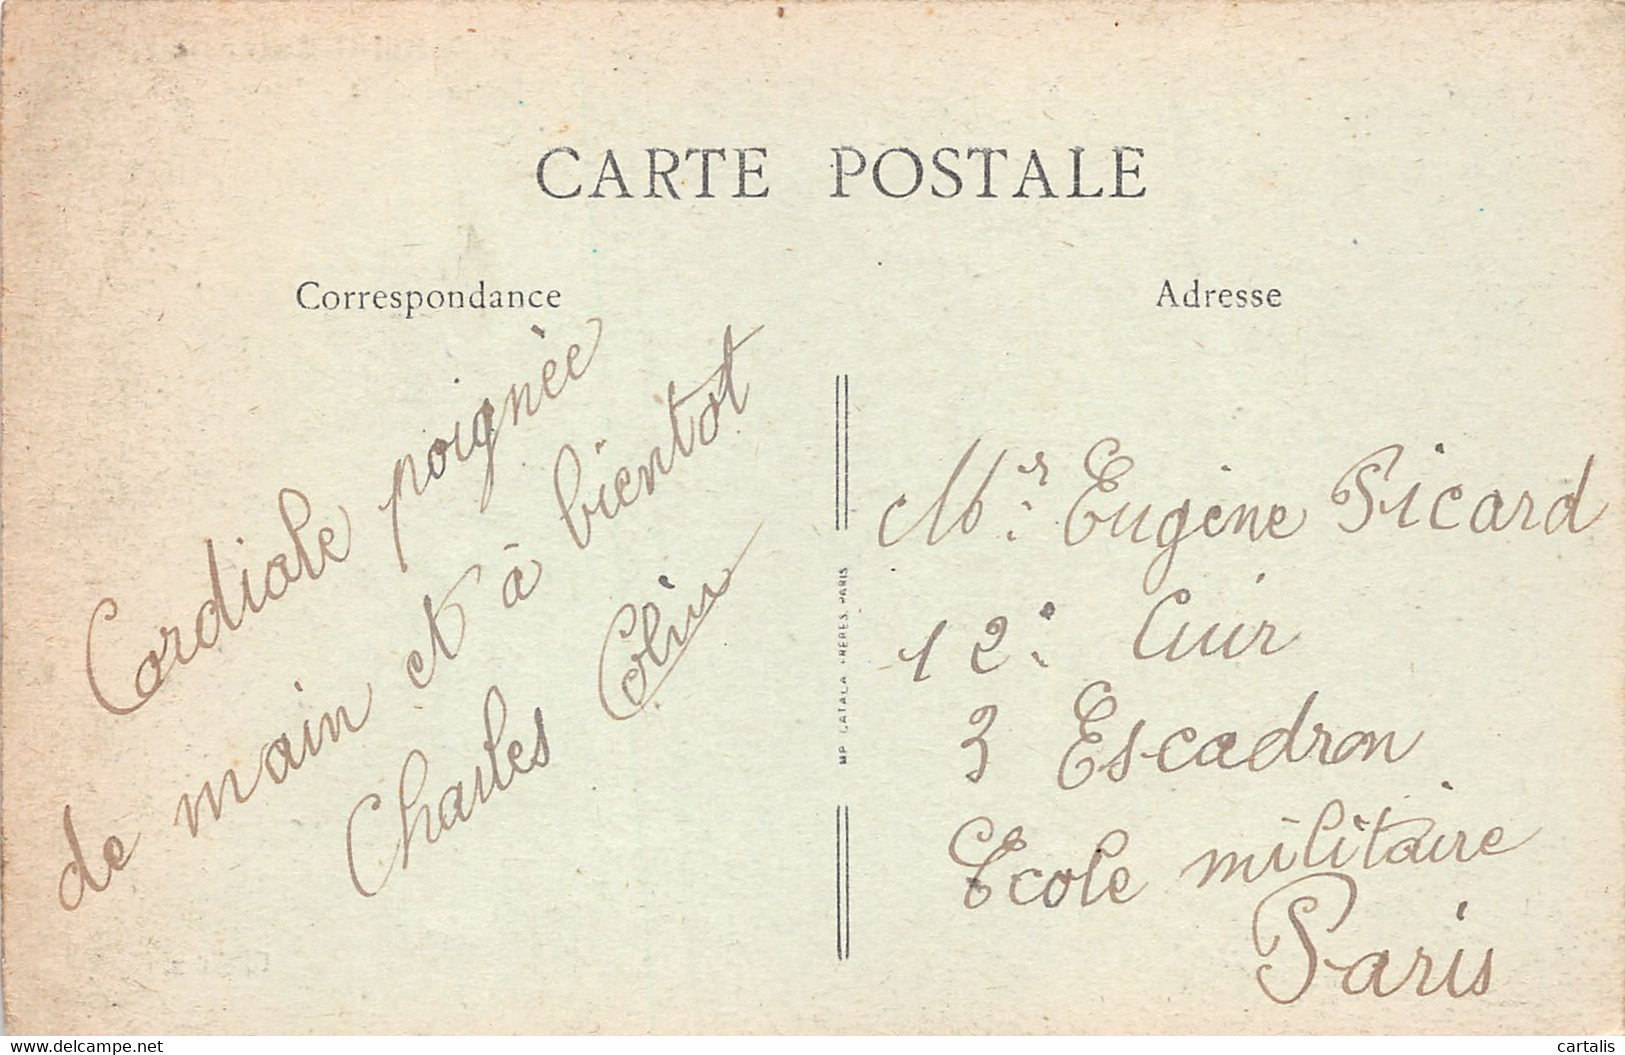 CARTE POSTALE
Correspondance
Adresse
Cordiale poignèe
de main et à bientot
Charles Colin
Mr. Eugène Picard
12e Cuir
3 Escadron
Ecole militaire
Paris
IMP. CATALA FRERES, PARIS
www.delcampe.net
cartalis